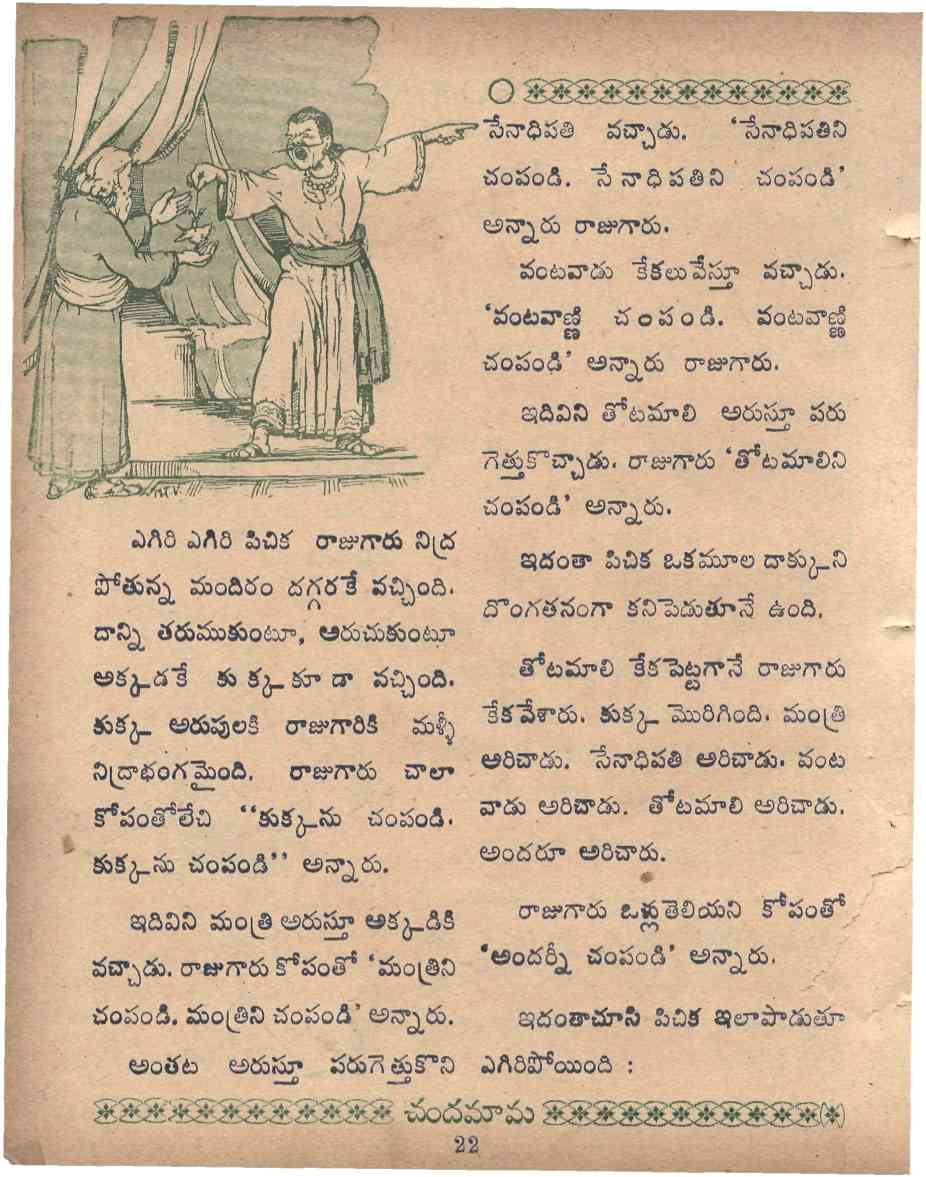 ఎగిరి ఎగిరి పిచిక రాజుగారు నిద్ర
పోతున్న మందిరం దగ్గరకే వచ్చింది.
దాన్ని తరుముకుంటూ, అరుచుకుంటూ
అక్కడకే కుక్కకూడా వచ్చింది.
కుక్క అరుపులకి రాజుగారికి మళ్ళీ
నిద్రాభంగమైంది. రాజుగారు చాలా
కోపంతోలేచి ‘‘కుక్కను చంపండి.
కుక్కను చంపండి’’ అన్నారు.
ఇదివిని మంత్రి అరుస్తూ అక్కడికి
వచ్చాడు. రాజుగారు కోపంతో ‘మంత్రిని
చంపండి. మంత్రిని చంపండి’ అన్నారు.
అంతట అరుస్తూ పరుగెత్తుకొని
సేనాధిపతి వచ్చాడు. ‘సేనాధిపతిని
చంపండి. సేనాధిపతిని చంపండి’
అన్నారు రాజుగారు.
వంటవాడు కేకలువేస్తూ వచ్చాడు.
‘వంటవాణ్ణి చంపండి. వంటవాణ్ణి
చంపండి’ అన్నారు రాజుగారు.
ఇదివిని తోటమాలి అరుస్తూ పరు
గెత్తుకొచ్చాడు. రాజుగారు ‘తోటమాలిని
చంపండి’ అన్నారు.
ఇదంతా పిచిక ఒకమూల దాక్కుని
దొంగతనంగా కనిపెడుతూనే ఉంది.
తోటమాలి కేకపెట్టగానే రాజుగారు
కేకవేశారు. కుక్క మొరిగింది. మంత్రి
అరిచాడు. సేనాధిపతి అరిచాడు. వంట
వాడు అరిచాడు. తోటమాలి అరిచాడు.
అందరూ అరిచారు.
రాజుగారు ఒళ్లుతెలియని కోపంతో
‘అందర్నీ చంపండి’ అన్నారు.
ఇదంతాచూసి పిచిక ఇలాపాడుతూ
ఎగిరిపోయింది :
చందమామ
22